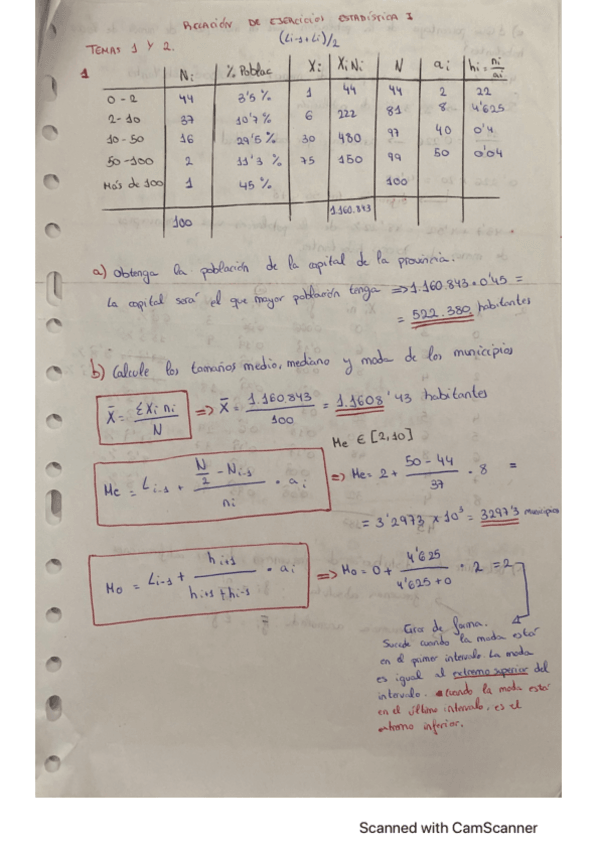 RELACIÓN DE EJERCICIOS ESTADÍSTICA I
TEMAS 1 Y 2.
(Li-1+Li)/2
1 Ni % Poblac Xi XiNi N ai hi = ni/ai
0-2 44 3'5 % 1 44 44 2 22
2-10 37 10'7 % 6 222 81 8 4'625
10-50 16 29'5 % 30 480 97 40 0'4
50-100 2 11'3 % 75 150 99 50 0'04
Más de 100 1 45 % 100
100 1.160.843
a) Obtenga la población de la capital de la provincia.
La capital será el que mayor población tenga ⇒ 1.160.843 · 0'45 =
= 522.380 habitantes
b) Calcule los tamaños medio, mediano y moda de los municipios
X̄ = ΣXi ni / N ⇒ X̄ = 1.160.843 / 100 = 1.1608'43 habitantes
Me ∈ [2,10]
Me = Li-1 + (N/2 - Ni-1) / ni · ai ⇒ Me = 2 + (50 - 44) / 37 · 8 =
= 3'2973 x 10³ = 3297'3 municipios
Mo = Li-1 + hi+1 / (hi+1 + hi-1) · ai ⇒ Mo = 0 + 4'625 / (4'625 + 0) · 2 = 2
de forma.
Sucede cuando la moda está
en el primer intervalo. La moda
es igual al extremo superior del
intervalo. Cuando la moda está
en el último intervalo, es el
extremo inferior.
Scanned with CamScanner